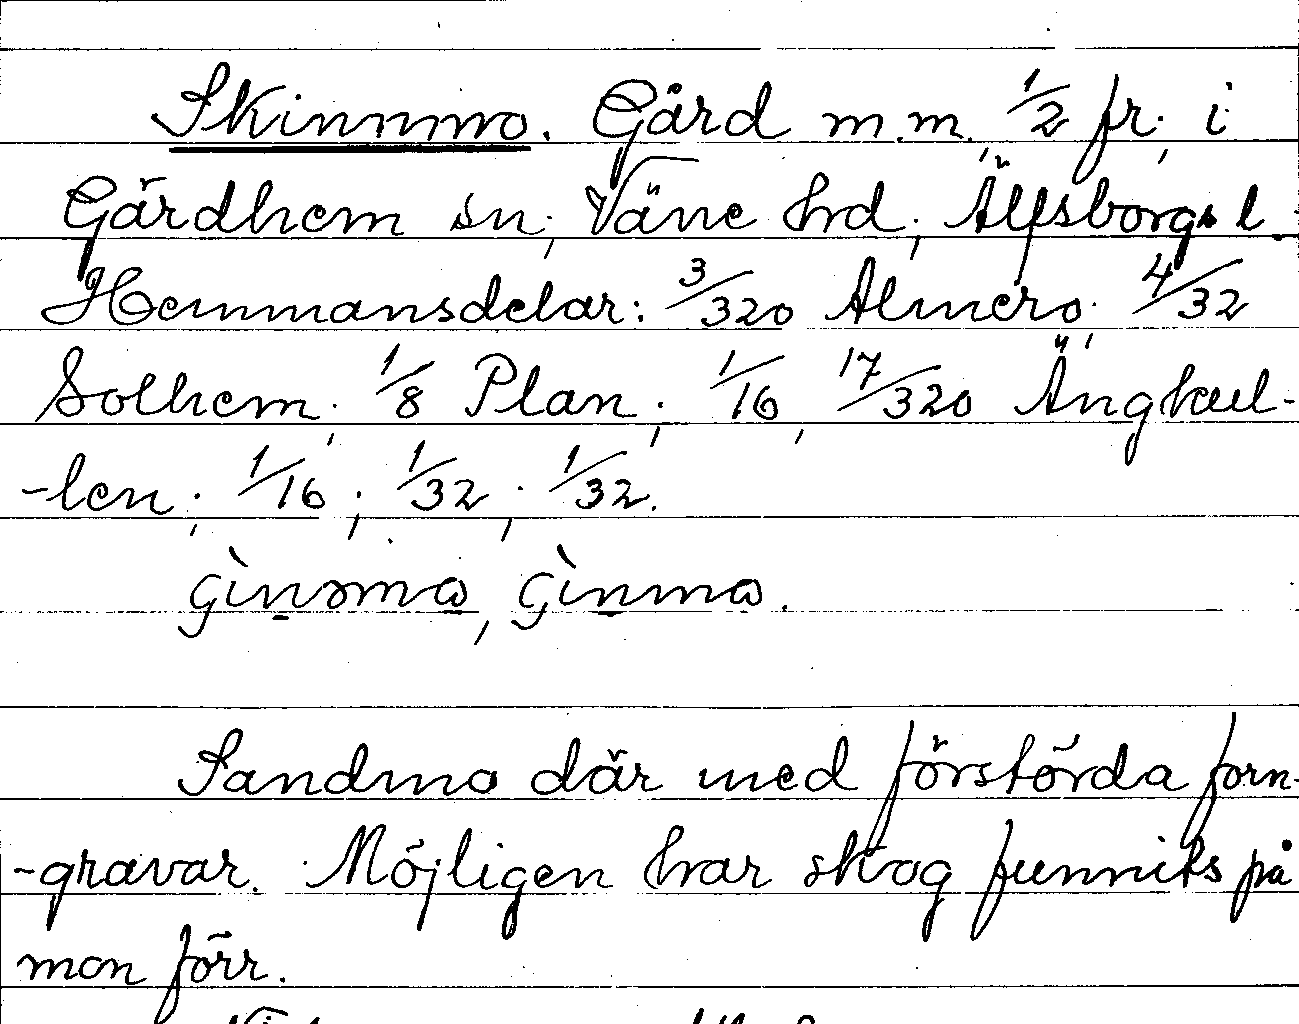 Skinnmo. Gård m.m., 1/2 fr., i
Gärdhem sn; Väne hrd; Älfsborgs l.
Hemmansdelar: 3/320 Almero. 4/32
Solhem; 1/8 Plan; 1/16, 17/320 Ängkul-
-len; 1/16; 1/32; 1/32.
Sandmo där med förstörda forn-
-gravar. Möjligen har skog funnits på
mon förr.